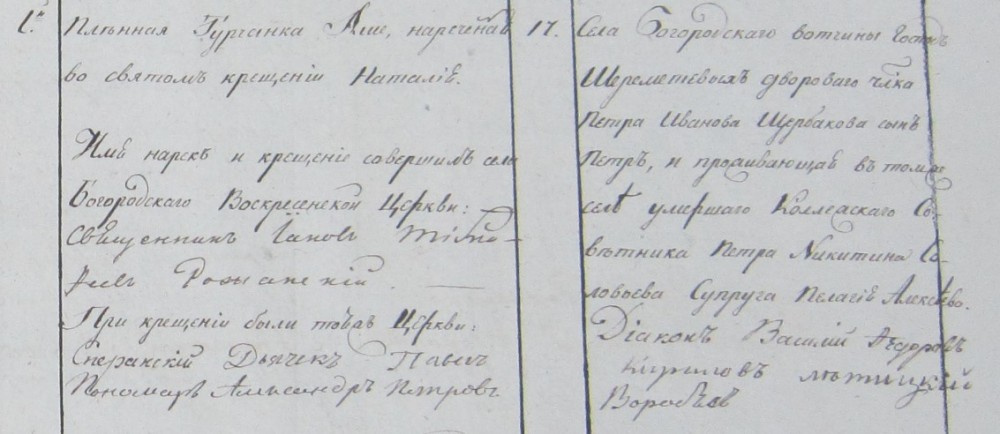 1.
Плѣнная Турчанка Аше, наречѣннаѣ
во святомъ крещеніи Наталіѣ.
Имѣ нарекъ и крещеніе совершилъ села
Богородскаго Воскресенской Церкви:
Священникъ Іаковъ
При крещеніи были тоѣжъ Церкви:
Сперанскій Дьячекъ Павелъ
Пономарь Александръ Петровъ
17.
Села Богородскаго вотчины Госпдъ
Шереметевыхъ двороваго члка
Петра Иванова Щербакова сынъ
Петръ, и проживающаѣ въ томже
селѣ умершаго Коллежскаго Со-
вѣтника Петра Никитина Со-
ловьева Супруга Пелагіѣ Алексѣева.
Діаконъ Василій Ѳедоровъ
Воробьевъ